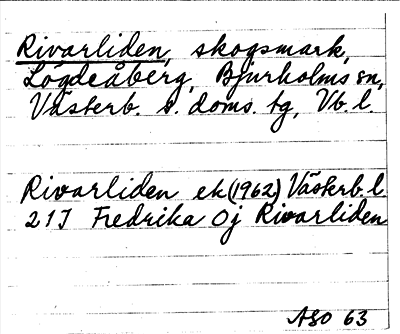 Rivarliden, skogsmark,
Lögdeåberg, Bjurholms sn,
Västerb. s. doms. tg, Vb. l.
Rivarliden ek (1962) Västerb. l
21J Fredrika 0j Rivarliden
ASO 63